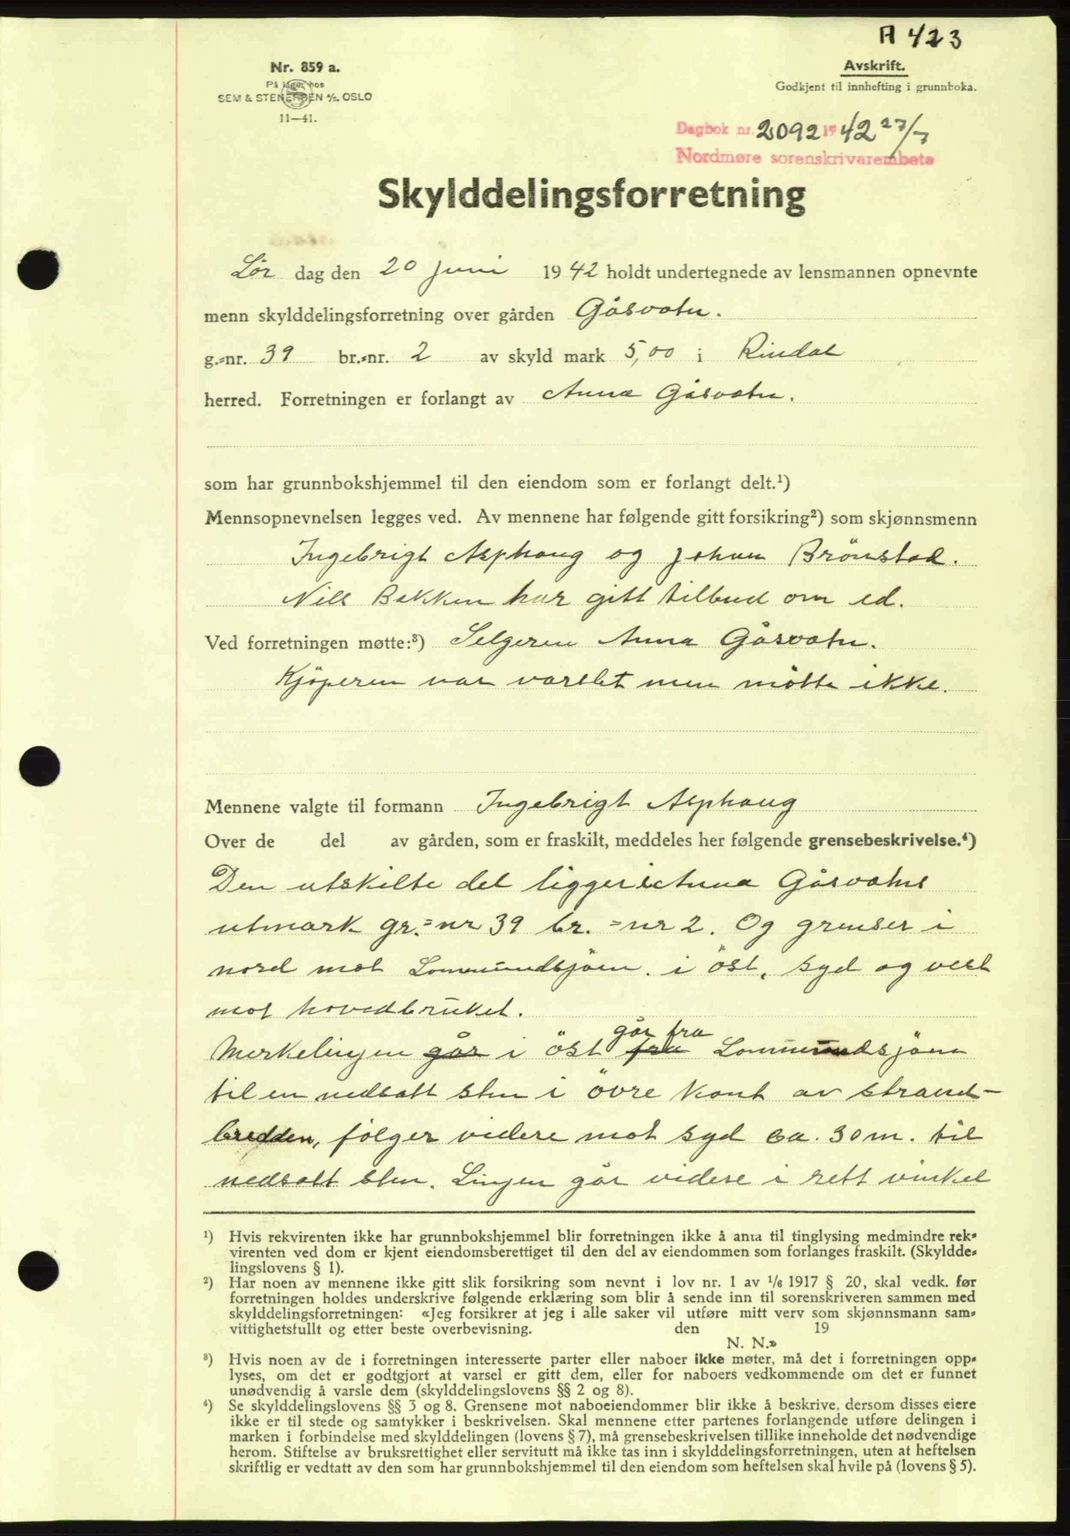 A 423
Nr. 859 a.
På lager hos
SEM & STENERSEN A/S. OSLO
11—41.
Avskrift.
Godkjent til innhefting i grunnboka.
Dagbok nr. 2092 1942 27/7
Nordmøre sorenskrivarembete
Skylddelingsforretning
Lør dag den 20 juni 1942 holdt undertegnede av lensmannen opnevnte
menn skylddelingsforretning over gården Gåsvatn.
g.-nr. 39 br.-nr. 2 av skyld mark 5,00 i Rindal
herred. Forretningen er forlangt av Anna Gåsvatn.
som har grunnbokshjemmel til den eiendom som er forlangt delt.¹)
Mennsopnevnelsen legges ved. Av mennene har følgende gitt forsikring²) som skjønnsmenn
Ingebrigt Asphaug og Johan Brønstad.
Nils Bakken har gitt tilbud om ed.
Ved forretningen møtte:³) Selgeren Anna Gåsvatn.
Kjöperen var varslet men møtte ikke.
Mennene valgte til formann Ingebrigt Asphaug
Over de del av gården, som er fraskilt, meddeles her følgende grensebeskrivelse.⁴)
Den utskilte del ligger i Anna Gåsvatns
utmark gr.=nr 39 br.=nr 2. Og grenser i
nord mot Lommundsjöen. i öst, syd og vest
mot hovedbruket.
går fra
Merkelinjen går i öst fra Lommundsjöen
til en nedsatt sten i övre kant av strand-
bredden, følger videre mot syd ca. 30 m. til
nedsatt sten. Linjen går videre i rett vinkel
¹) Hvis rekvirenten ikke har grunnbokshjemmel blir forretningen ikke å anta til tinglysing medmindre rek-
virenten ved dom er kjent eiendomsberettiget til den del av eiendommen som forlanges fraskilt. (Skyldde-
lingslovens § 1).
²) Har noen av mennene ikke gitt slik forsikring som nevnt i lov nr. 1 av 1/6 1917 § 20, skal vedk. før
forretningen holdes underskrive følgende erklæring som blir å sende inn til sorenskriveren sammen med
skylddelingsforretningen: «Jeg forsikrer at jeg i alle saker vil utføre mitt verv som skjønnsmann sam-
vittighetsfullt og etter beste overbevisning. den 19
N. N.»
³) Hvis noen av de i forretningen interesserte parter eller naboer ikke møter, må det i forretningen opp-
lyses, om det er godtgjort at varsel er gitt dem, eller for naboers vedkommende om det er funnet
unødvendig å varsle dem (skylddelingslovens §§ 2 og 8).
⁴) Se skylddelingslovens §§ 3 og 8. Grensene mot naboeiendommer blir ikke å beskrive, dersom disses eiere
ikke er til stede og samtykker i beskrivelsen. Skal mennene etter partenes forlangende utføre delingen i
marken i forbindelse med skylddelingen (lovens § 7), må grensebeskrivelsen tillike inneholde det nødvendige
herom. Stiftelse av bruksrettighet eller servitutt må ikke tas inn i skylddelingsforretningen, uten at heftelsen
skriftlig er vedtatt av den som har grunnbokshjemmel til den eiendom som heftelsen skal hvile på (lovens § 5).